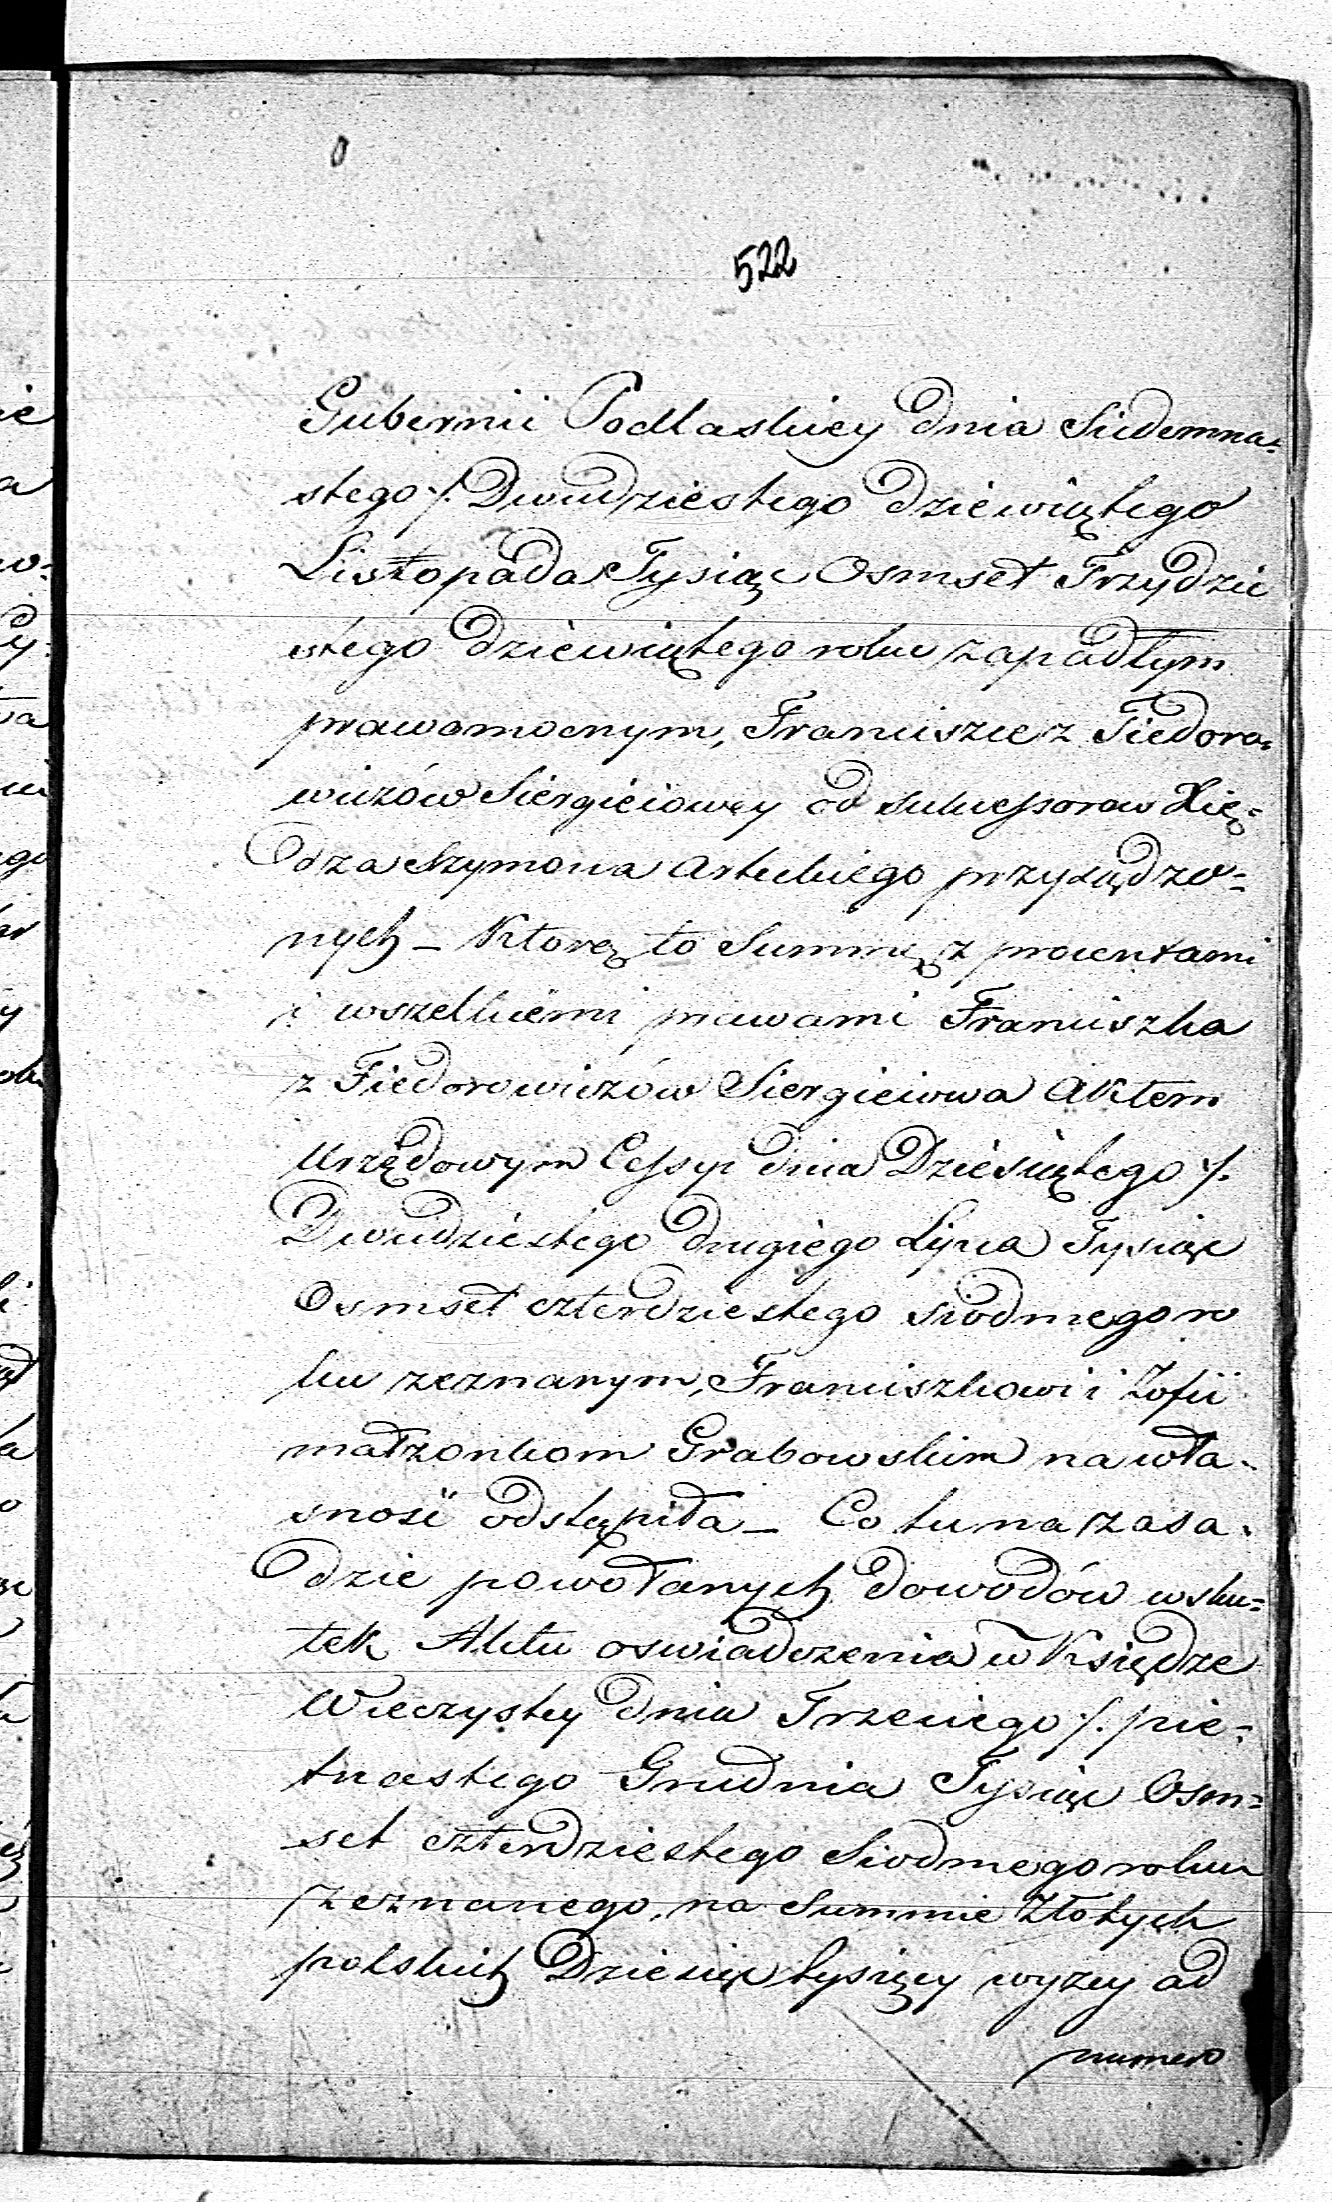 522
Gubernii Podlaskiey dnia Siedemna=
stego /. Dwudziestego dziewiątego
Listopada Tysiąc Osmset Trzydzie
stego dziewiątego roku zapadłym
prawomocnym, Franciszce z Fiedoro=
wiczów Siergieiowey od sukcessorow Xię=
dza Szymona przysądzo=
nych – Którę to Summę z procentami
i wszelkiemi prawami Franciszka
z Fiedorowiczów Siergieiowa Aktem
Urzędowym Cessyi dnia Dziesiątego /.
Dwudziestego drugiego Lipca Tysiąc
Osmset czterdziestego siodmego ro
ku zeznanym, Franciszkowi i Zofii
małżonkom Grabowskim na wła=
sność odstąpiła – Co tu na zasa=
dzie powołanych dowodów wsku=
tek Aktu oswiadczenia w Księdze
Wieczystey dnia Trzeciego /. pię=
tnastego Grudnia Tysiąc Osm=
set czterdziestego Siodmego roku
zeznanego, na Summie Złotych
polskich Dziesięć tysięcy wyzey ad
numero